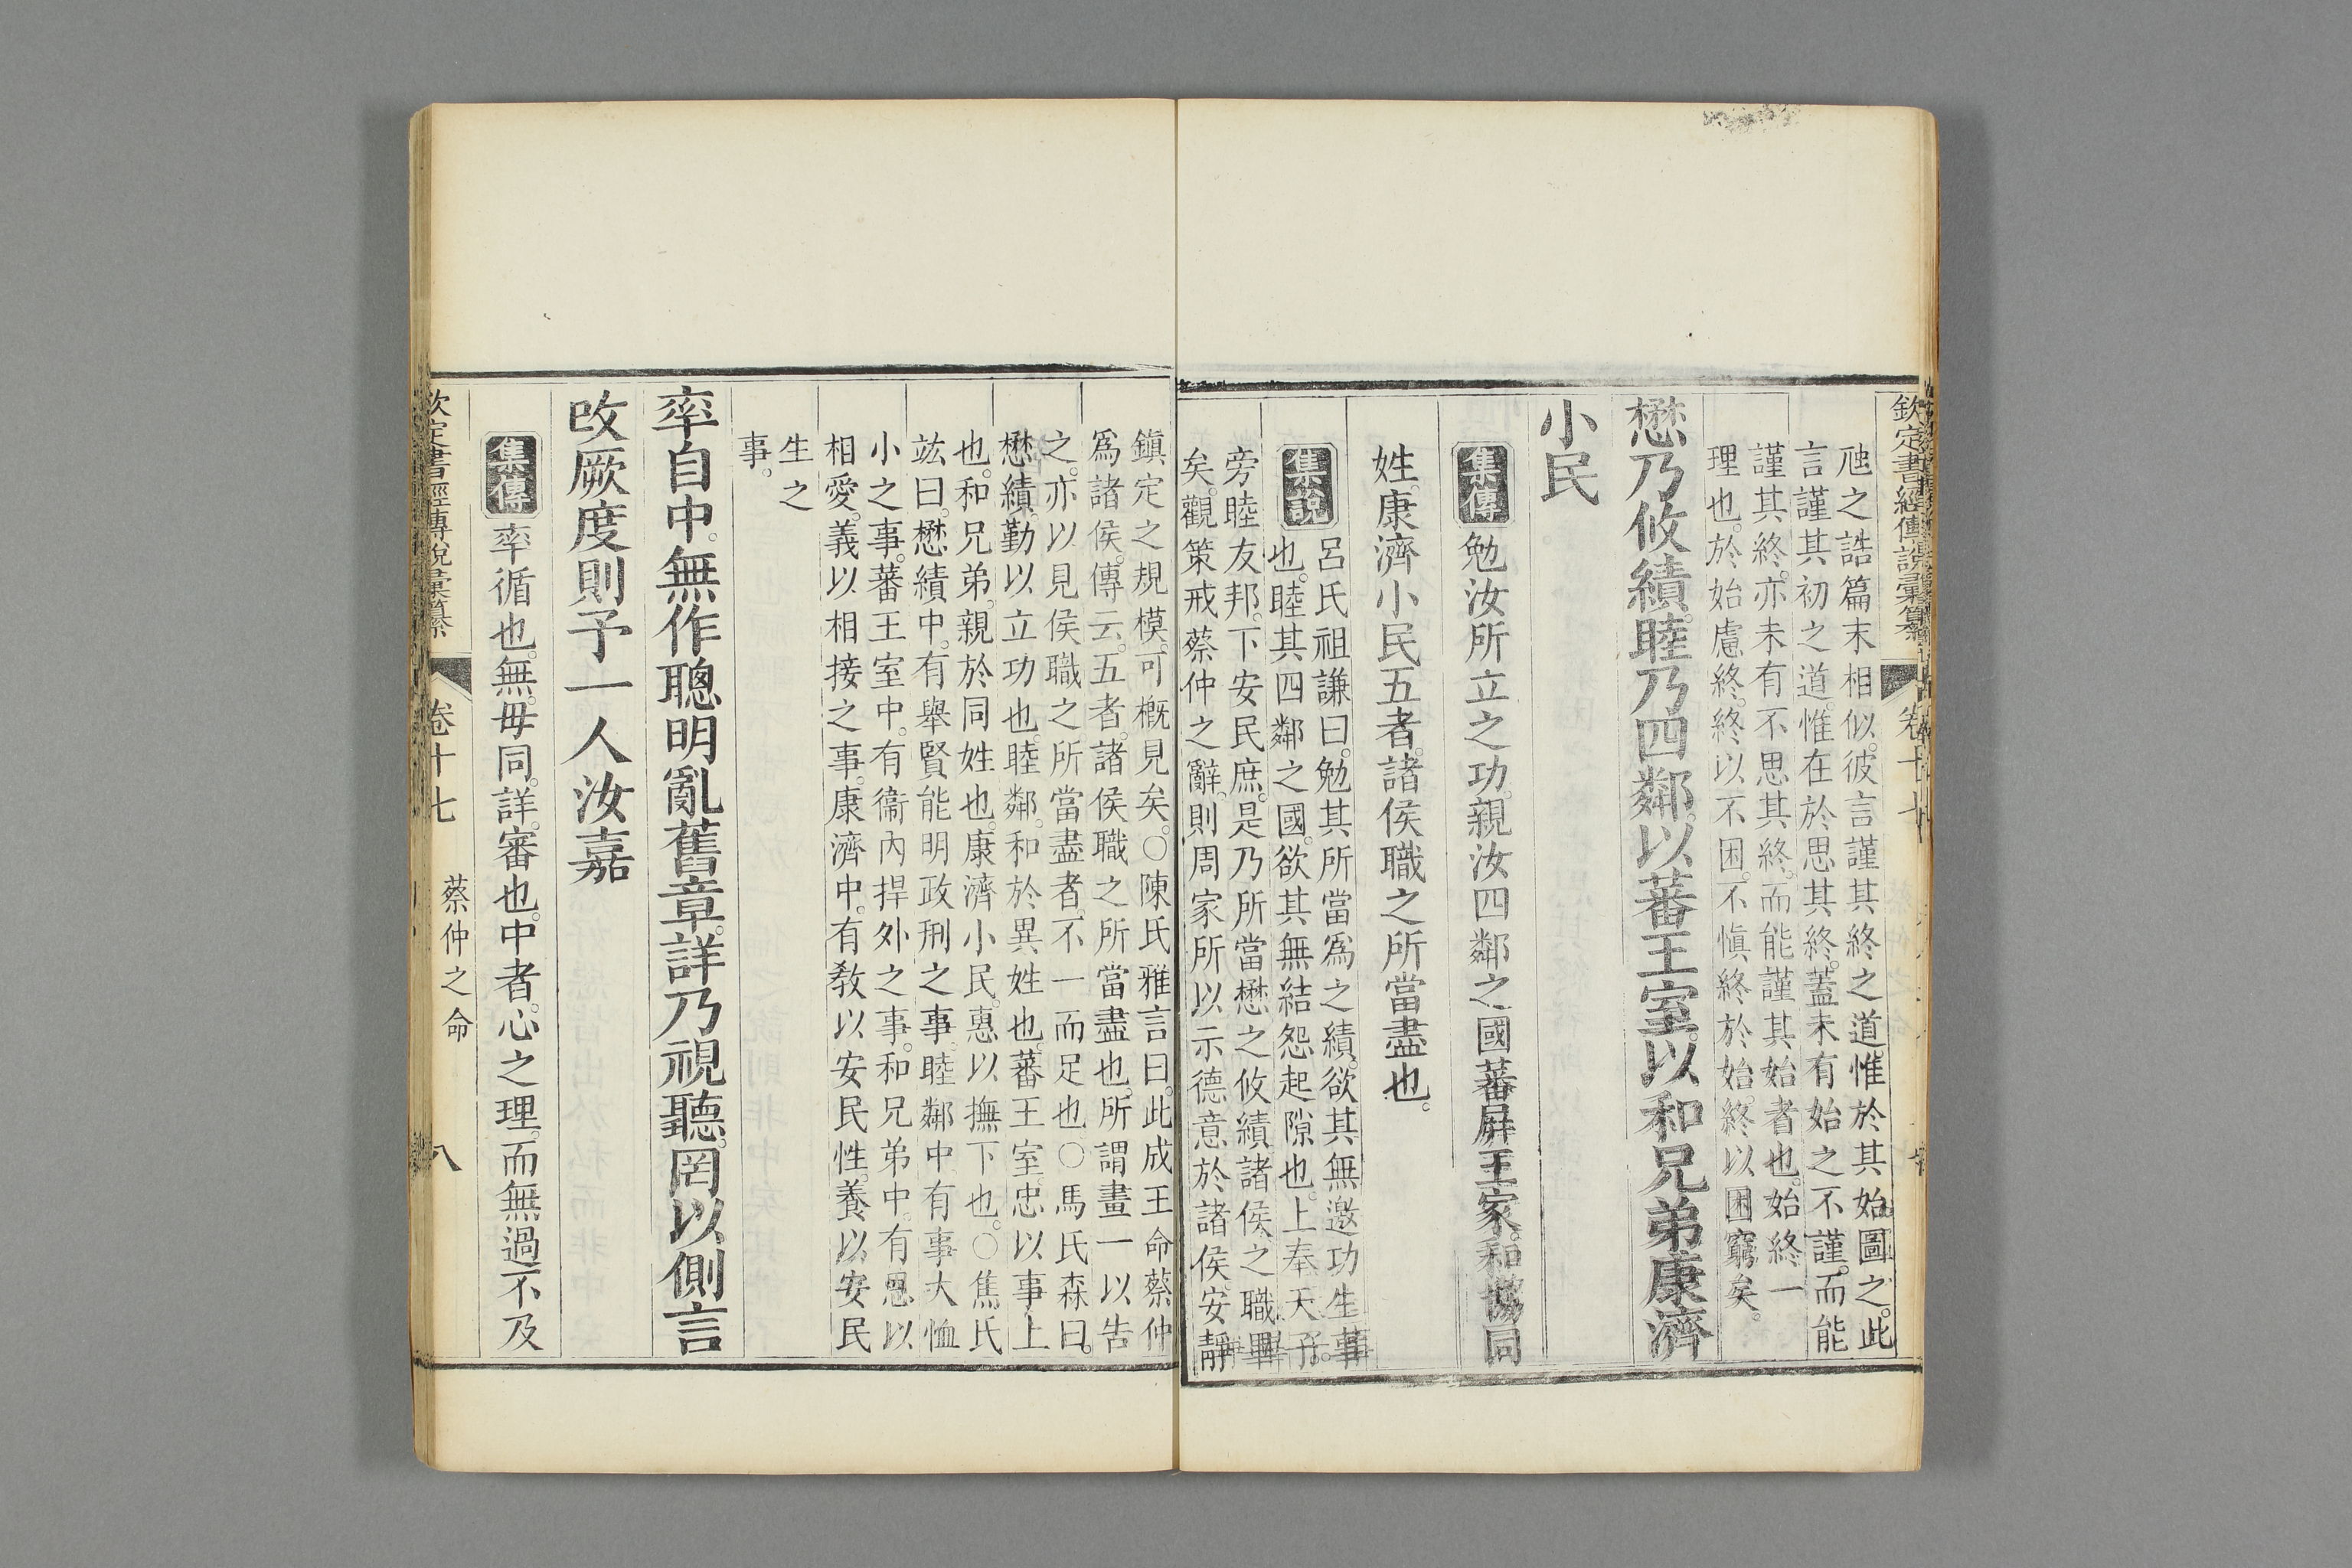 欽定書經傳說彙纂 卷十七
虺之誥篇末相似。彼言謹其終之道。惟於其始圖之。此
言謹其初之道。惟在於思其終。蓋未有始之不謹。而能
謹其終。亦未有不思其終。而能謹其始者也。始終一
理也。於始慮終。終以不困。不愼終於始。終以困窮矣。
懋乃攸績。睦乃四鄰。以蕃王室。以和兄弟。康濟
小民
集傳 勉汝所立之功。親汝四鄰之國。蕃屛王家。和協同
姓。康濟小民。五者。諸侯職之所當盡也。
集說 呂氏祖謙曰。勉其所當爲之績。欲其無邀功生事
也。睦其四鄰之國。欲其無結怨起隙也。上奉天子。
旁睦友邦。下安民庶。是乃所當懋之攸績。諸侯之職畢
矣。觀策戒蔡仲之辭。則周家所以示德意於諸侯。安靜
鎭定之規模。可槪見矣。○陳氏雅言曰。此成王命蔡仲
爲諸侯。傳云。五者。諸侯職之所當盡也。所謂畫一以告
之。亦以見侯職之所當盡者。不一而足也。○馬氏森曰。
懋績。勤以立功也。睦鄰。和於異姓也。蕃王室。忠以事上
也。和兄弟。親於同姓也。康濟小民。惠以撫下也。○焦氏
竑曰。懋績中。有舉賢能明政刑之事。睦鄰中有事大恤
小之事。蕃王室中。有衞內捍外之事。和兄弟中。有恩以
相愛。義以相接之事。康濟中。有敎以安民性。養以安民
生之
事。
率自中。無作聰明亂舊章。詳乃視聽。罔以側言
改厥度。則予一人汝嘉
集傳 率循也。無。毋同。詳。審也。中者。心之理。而無過不及
欽定書經傳說彙纂 卷十七 蔡仲之命 八